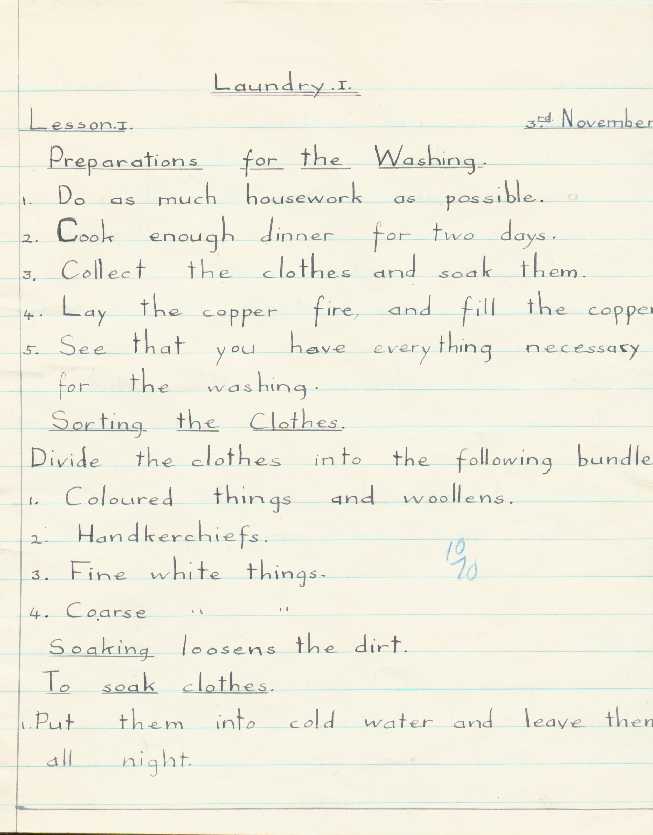 Laundry.I.
Lesson.I. 3rd. November
Preparations for the Washing.
1. Do as much housework as possible.
2. Cook enough dinner for two days.
3. Collect the clothes and soak them.
4. Lay the copper fire, and fill the copper
5. See that you have everything necessary
for the washing.
Sorting the Clothes.
Divide the clothes into the following bundle
1. Coloured things and woollens.
2. Handkerchiefs.
10
3. Fine white things.
10
4. Coarse " "
Soaking loosens the dirt.
To soak clothes.
1. Put them into cold water and leave them
all night.